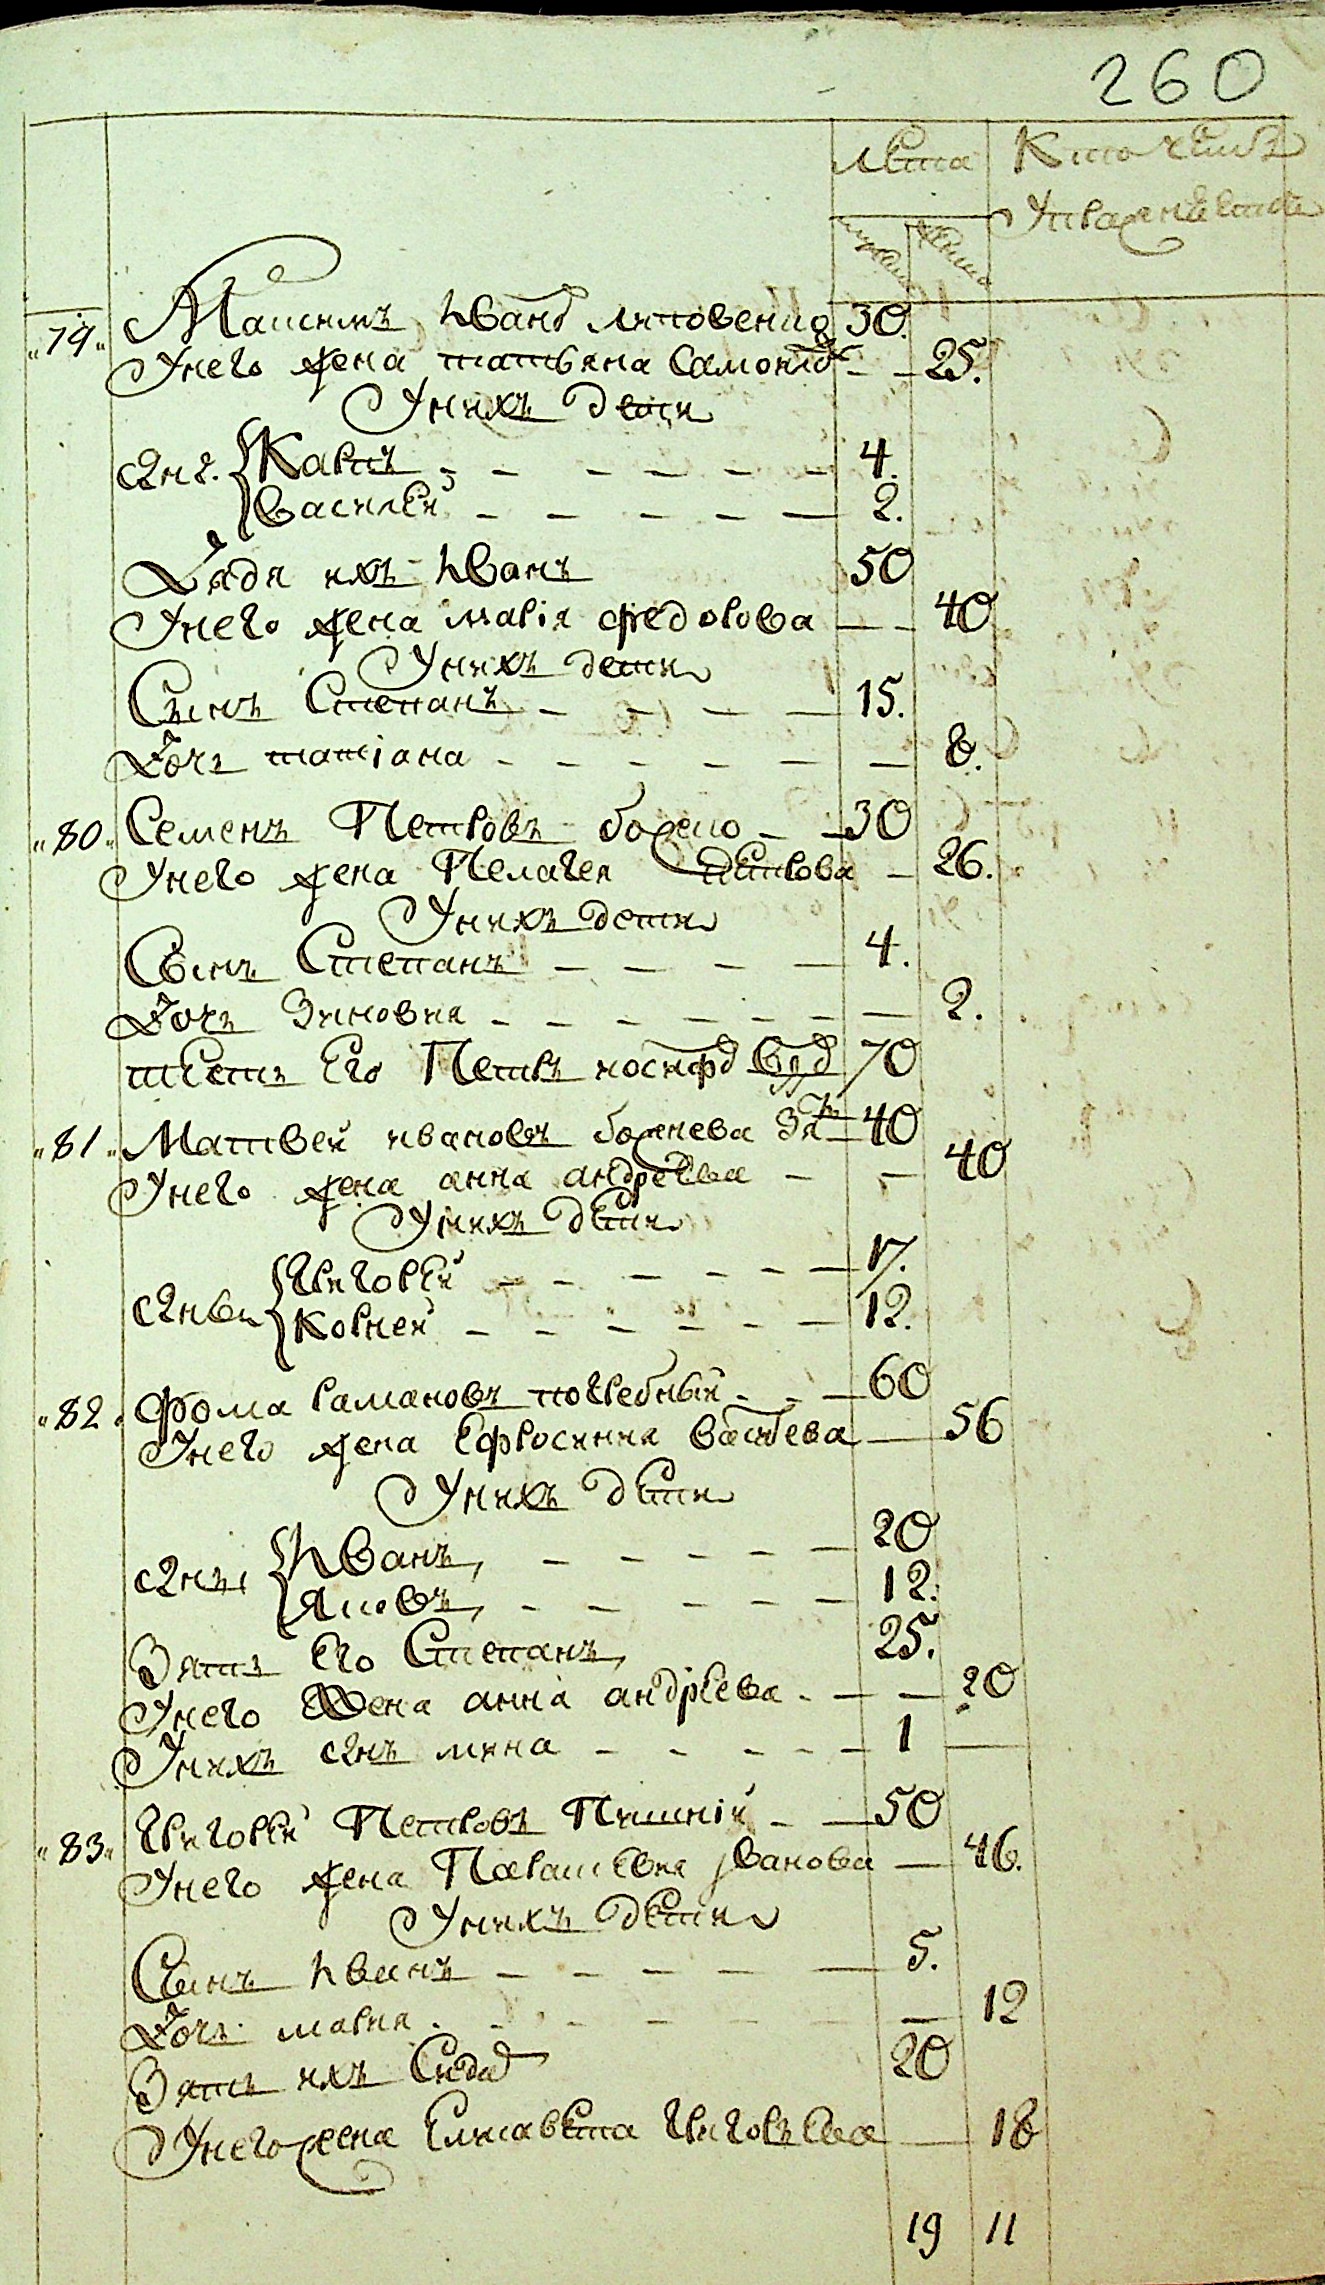 260
лѣта Кто чемъ
Упражнѣетца
мужска женска
„79„ Максимъ Иванов литовенко 30.
Унего жена татьяна Самойло 25.
Унихъ дети
сынъ. Карпъ 4.
василѣй 2.
Дядя ихъ Иванъ 50
Унего жена марія федорова 40
Унихъ дети
Сынъ Степанъ 15.
Дочь татіана 8.
„80„ Семенъ Петровъ божко 30
Унего жена Пелагея петрова 26.
Унихъ дети
Сынъ Степанъ 4.
Дочь Зиновия 2.
тѣсть Его Петръ иосифов вдов 70
„81„ Матвей ивановъ божнева Зять 40
Унего жена анна андрѣева 40
Унихъ дѣти
сынви Григорѣй 17.
Корней 12.
„82„ Фома рамановъ погребный 60
Унего жена Ефросиния василева 56
Унихъ дѣти
сынъи Иванъ, 20
Яковъ, 12.
Зять Его Степанъ, 25.
Унего жена анна андрѣева 20
Унихъ сынъ мина 1
„83„ Григорѣй Петровъ Пишній 50
Унего жена Парасѣвия іванова 46.
Унихъ дѣти
Сынъ Иванъ 5.
Дочь мария 12
Зять ихъ Сидор 20
Унего жена Елисавѣта Григорьева 18
19 11